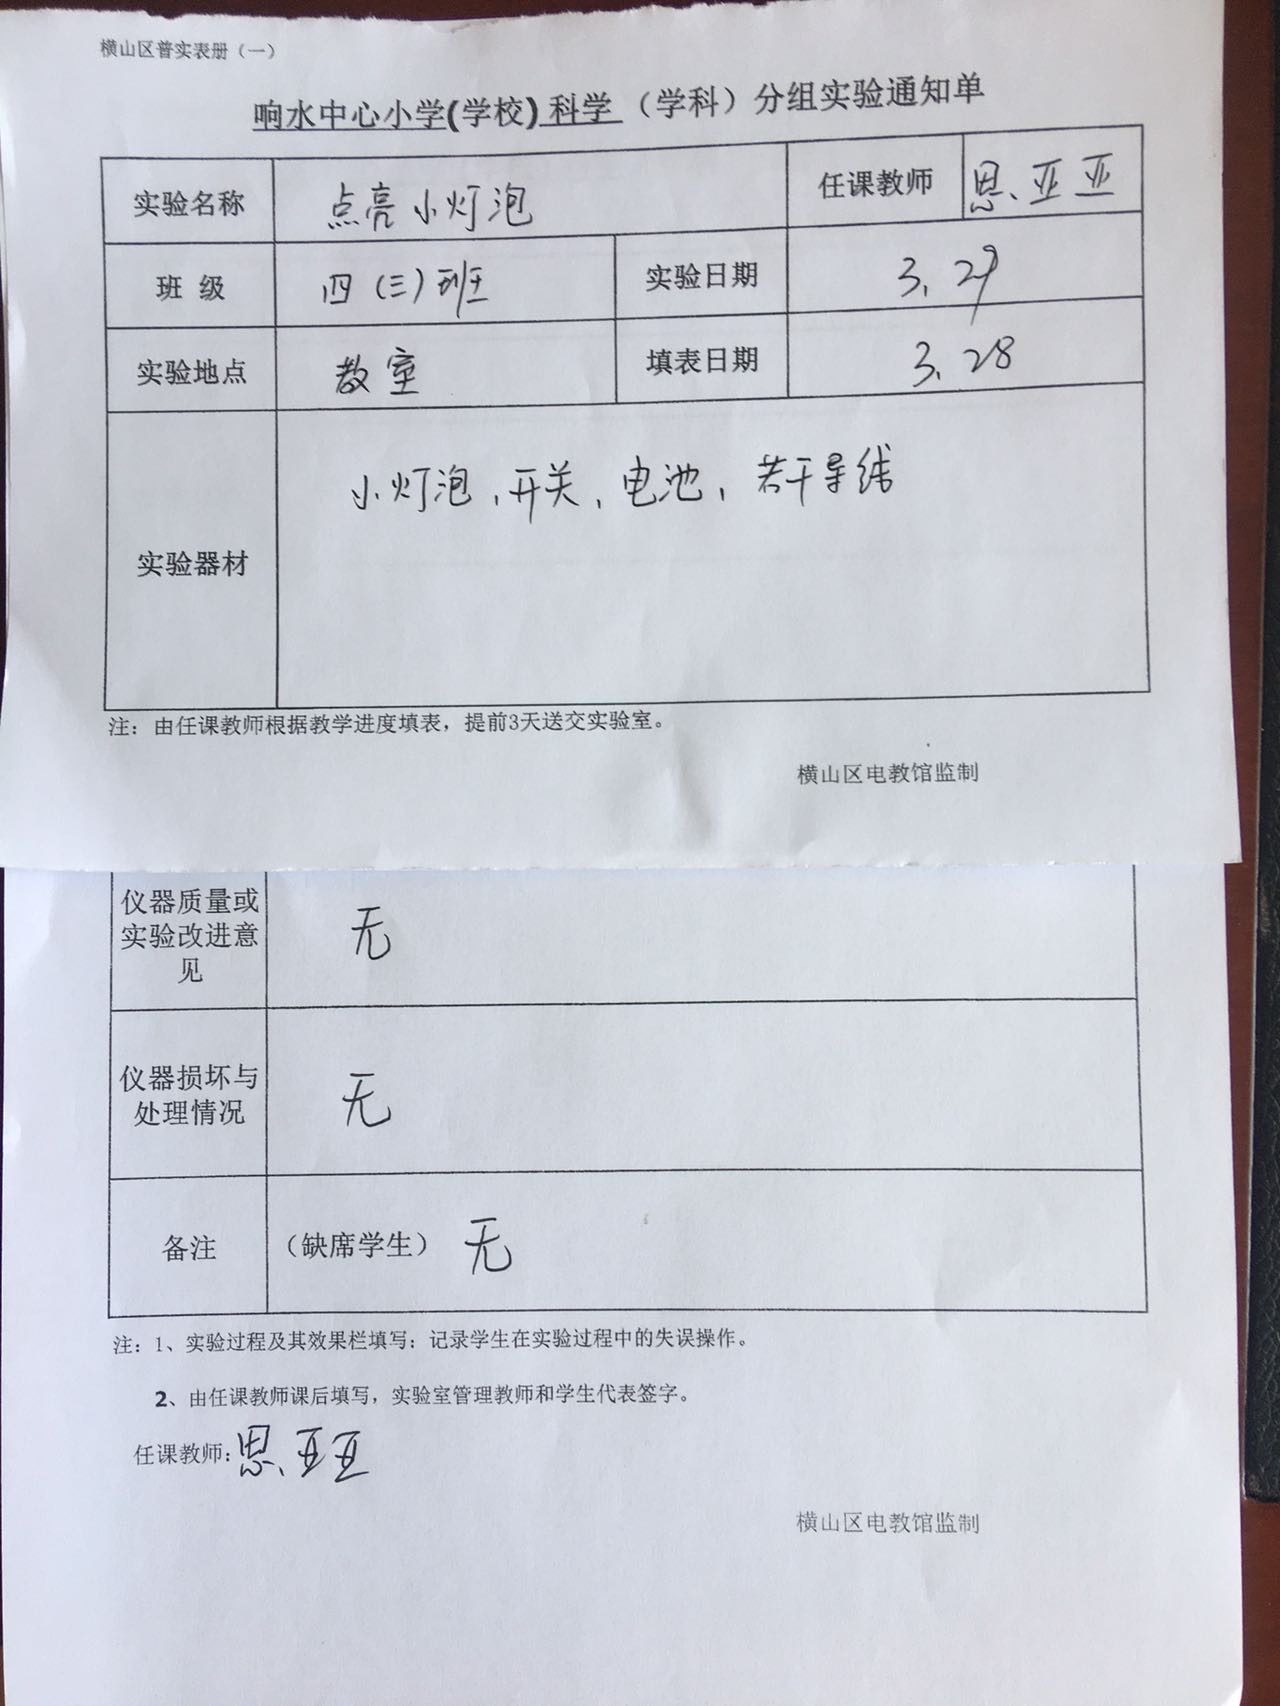 横山区普实表册（一）
响水中心小学(学校) 科学 （学科）分组实验通知单
实验名称 点亮小灯泡 任课教师 思亚亚
班 级 四（三）班 实验日期 3.29
实验地点 教室 填表日期 3.28
实验器材 小灯泡，开关，电池，若干导线
注：由任课教师根据教学进度填表，提前3天送交实验室。
横山区电教馆监制
仪器质量或
实验改进意
见
无
仪器损坏与
处理情况
无
备注 （缺席学生） 无
注：1、实验过程及其效果栏填写：记录学生在实验过程中的失误操作。
2、由任课教师课后填写，实验室管理教师和学生代表签字。
任课教师：思亚亚
横山区电教馆监制